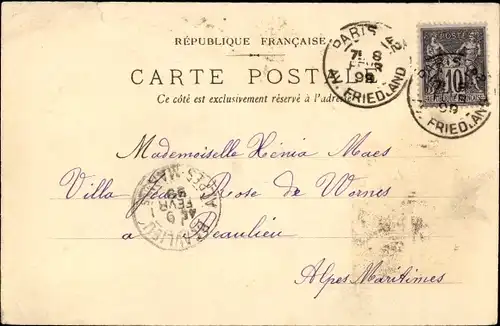 RÉPUBLIQUE FRANÇAISE
CARTE POSTALE
Ce côté est exclusivement réservé à l'adresse
PARIS
7E 8
FEVR
99
AV. FRIEDLAND
POSTES
10
99
FRIEDLAND
Mademoiselle Xénia Maes
Villa Rose de Wornes
a Beaulieu
Alpes Maritimes
BEAULIEU
9
FEVR
99